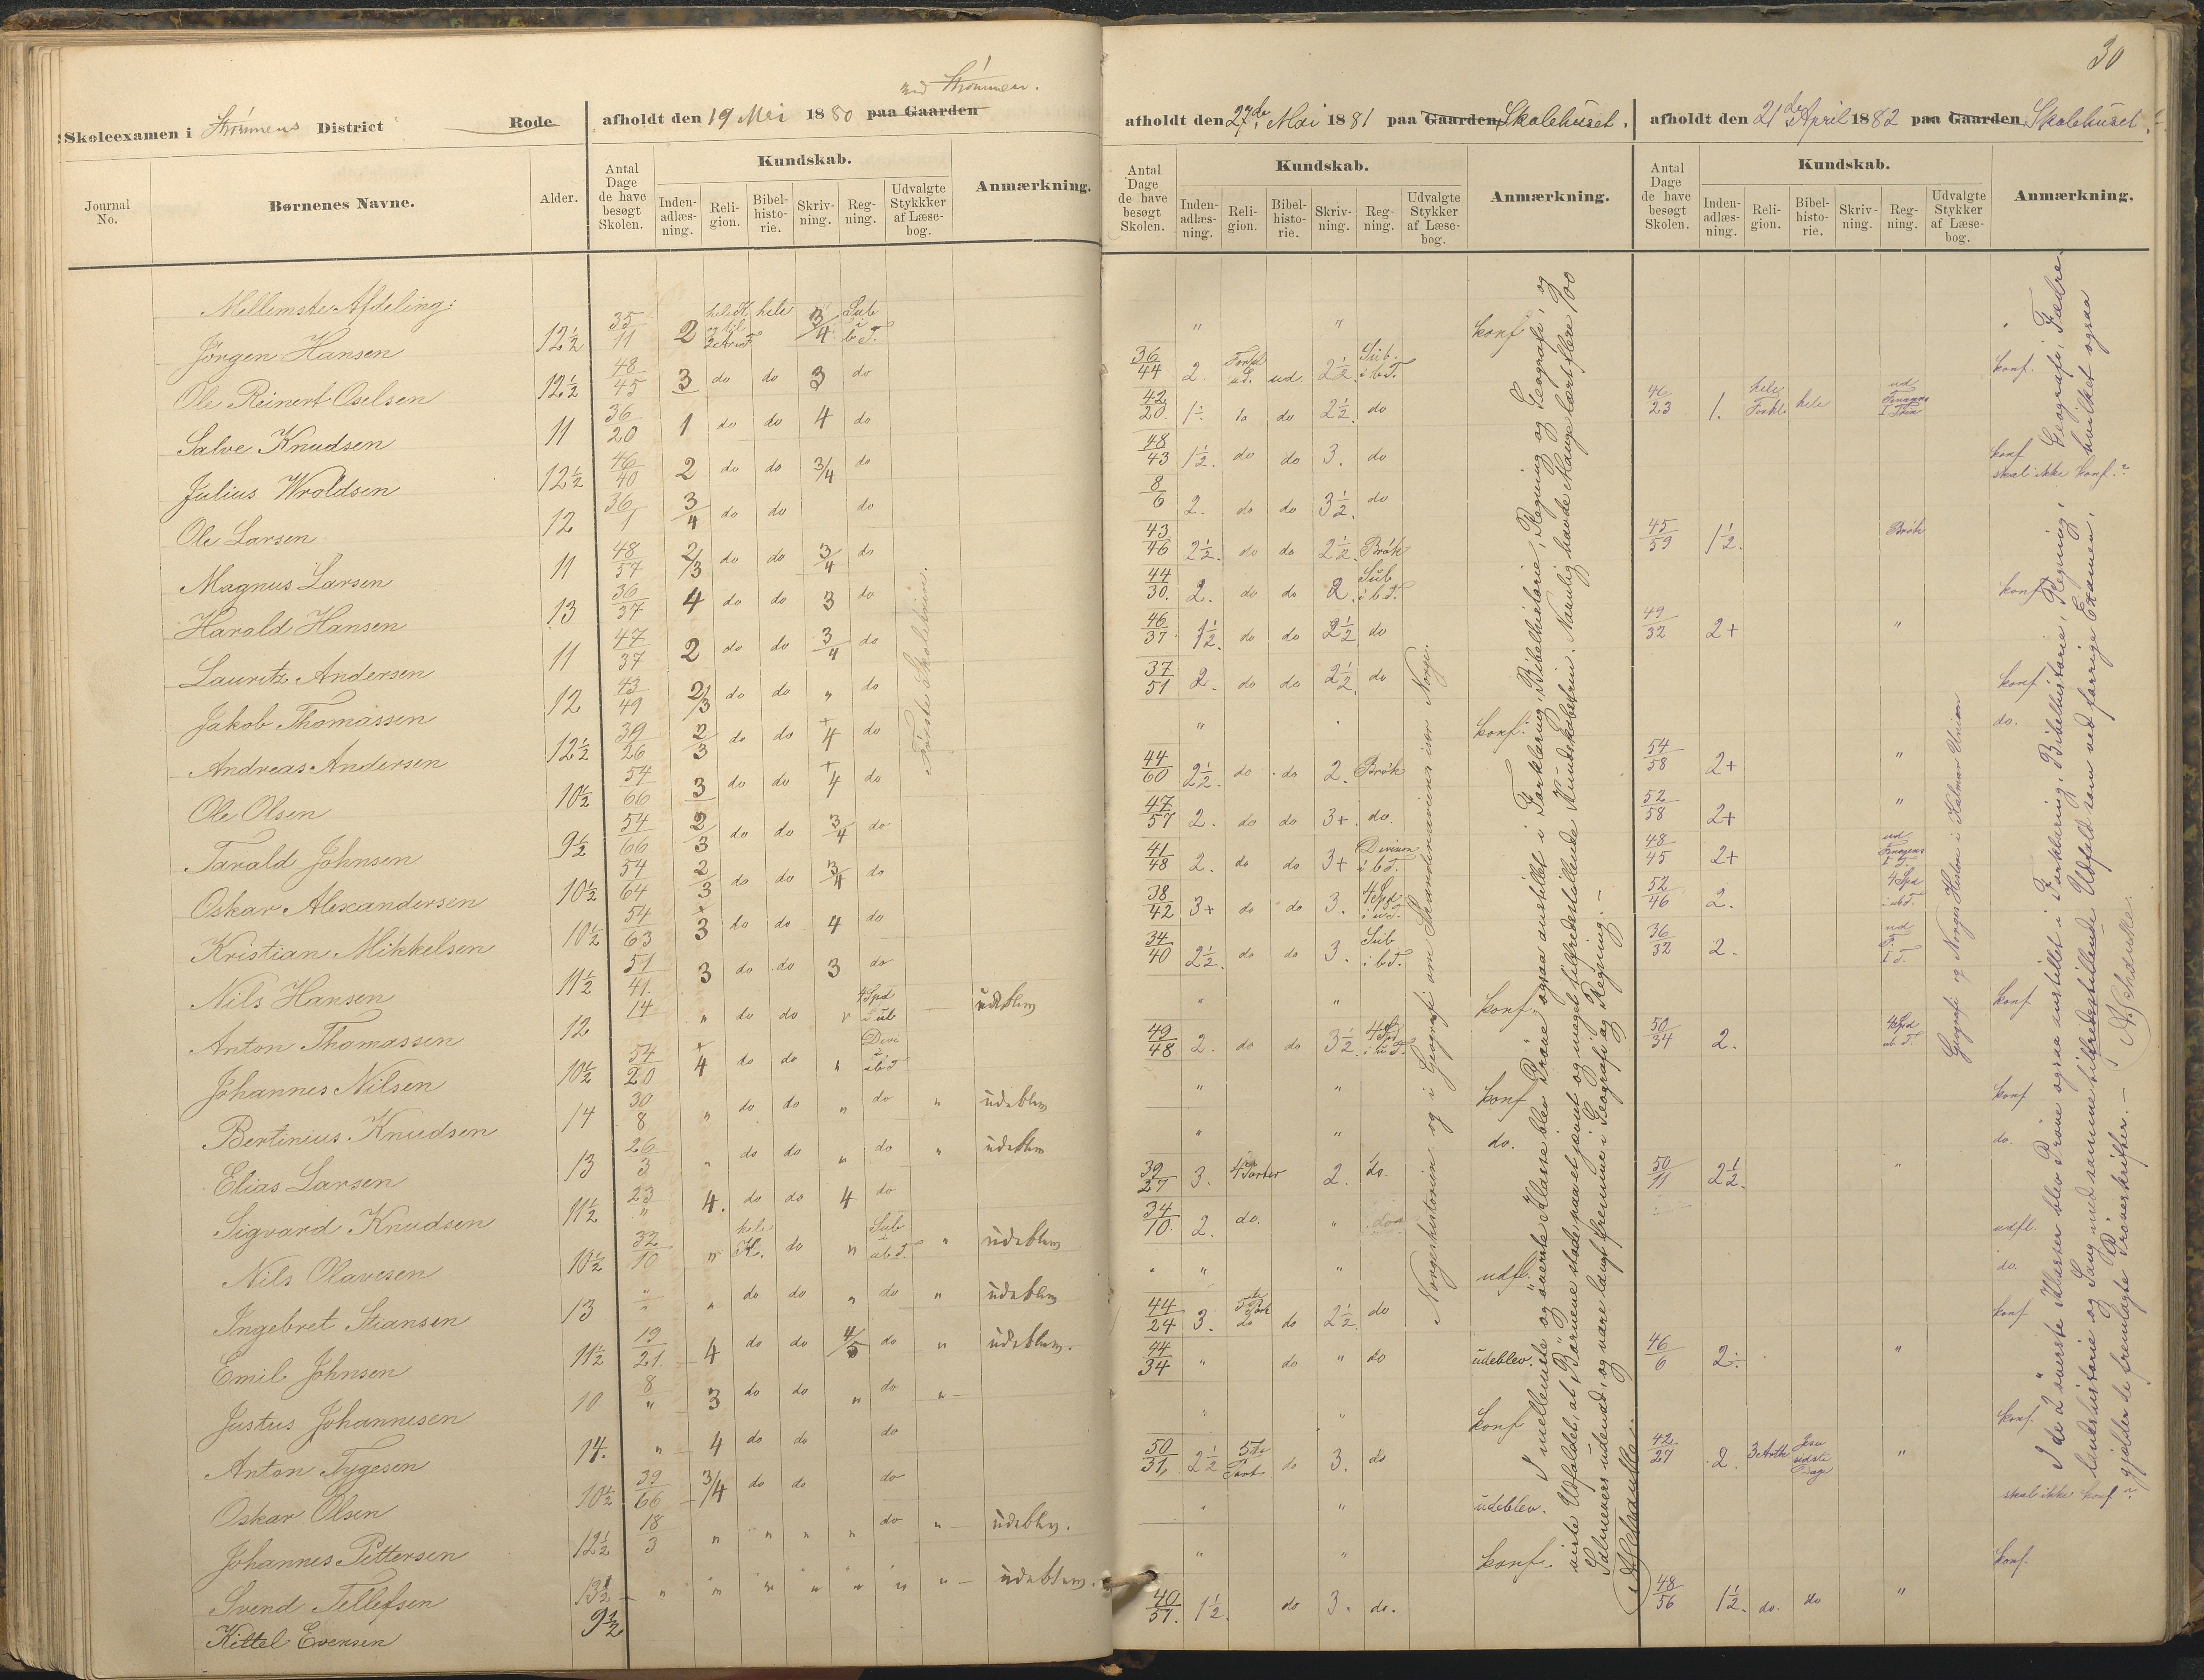 30
ved Strømmen.
Skoleexamen i Strømmens District Rode
afholdt den 19 Mai 1880 paa Gaarden
afholdt den 27de Mai 1881 paa Gaarden Skolehuset.
afholdt den 21de April 1882 paa Gaarden Skolehuset.
Journal No.
Børnenes Navne.
Alder.
Antal Dage de have besøgt Skolen.
Kundskab.
Inden-adlæs-ning.
Reli-gion.
Bibel-histo-rie.
Skriv-ning.
Reg-ning.
Udvalgte Stykkker af Læse-bog.
Anmærkning.
Antal Dage de have besøgt Skolen.
Kundskab.
Inden-adlæs-ning.
Reli-gion.
Bibel-histo-rie.
Skriv-ning.
Reg-ning.
Udvalgte Stykker af Læse-bog.
Anmærkning.
Antal Dage de have besøgt Skolen.
Kundskab.
Inden-adlæs-ning.
Reli-gion.
Bibel-histo-rie.
Skriv-ning.
Reg-ning.
Udvalgte Stykker af Læse-bog.
Anmærkning.
Mellemste Afdeling:
Jørgen Hansen 12½ 35/11 2 hele K og til 2 Art hele 3/4 Sub i b T. " " konf "
Ole Reinert Oselsen 12½ 48/45 3 do do 3 do 36/44 2. Forkl ud. ud 2½ Sub. i bT. konf.
Salve Knudsen 11 36/20 1 do do 4 do 42/20. 1÷ do do 2½ do 46/23 1. hele Forkl. hele
Julius Wroldsen 12½ 46/40 2 do do 3/4 do 48/43 1½. do do 3. do konf
Ole Larsen 12 36/1 3/4 do do do 8/6 2. do do 3½ do skal ikke konf.?
Magnus Larsen 11 48/57 2/3 do do 3/4 do 43/46 2½. do do 2½ Brøk 45/59 1½. Brøk
Harald Hansen 13 36/37 4 do do 3 do 44/30. 2. do do 2. Sub i b T. konf
Lauritz Andersen 11 47/37 2 do do 3/4 do 46/37 1½ do do 2½ do 49/32 2+ "
Jakob Thomassen 12 43/49 2/3 do do " do 37/51 2. do do 2½ do konf
Andreas Andersen 12½ 39/26 2/3 do do 4+ do " konf. do.
Ole Olsen 10½ 54/66 3 do do 4+ do 44/60 2½ do do 2. Brøk 54/58 2+ "
Tarald Johnsen 9½ 54/66 2/3 do do 3/4 do 47/57 2. do do 3+. do. 52/58 2+ "
Oskar Alexandersen 10½ 54/64 2/3 do do 3/4 do 41/48 2. do do 3+ Division i b T. 48/45 2+
Kristian Mikkelsen 10½ 54/63 3+ do do 4 do 38/42 3+ do do 3. 4 Spd 52/46 2. 4 Spd
Nils Hansen 11½ 51/41. 3 do do 3 do 34/40 2½. do do 3. Sub i b T. 36/32 2.
Anton Thomassen 12 14 " do do " 4 Spd i ub udeblev " " konf. konf
Johannes Nilsen 10½ 54/20 4+ do do " Divi i ub T 49/48 2. do do 3½ 4 Spd 50/34 2. 4 Spd ub. T.
Bertinius Knudsen 14 30/8 " do do " do " udeblev " " konf konf
Elias Larsen 13 26/3 " do do " do " udeblev " " do. do.
Sigvard Knudsen 11½ 23/" 4. do do 4 do 39/27 3. 4 Parter 2. do. 50/11 2½. "
Nils Olavesen 10½ 32/10 " hele K. do " Sub i ub T " udeblev 34/10. 2. do. " do udfl.
Ingebret Stiansen 13 " " do do " do " udeblev " " " udfl. do.
Emil Johnsen 11½ 19/21. 4 do do 4/5 do " udeblev. 44/24 3. 5te Part do 2½ do konf
Justus Johannesen 10 8/" 3 do do " do " 44/34 " do " do udeblev. 46/6 2÷ "
Anton Tygesen 14. " 4 do do do " " konf konf.
Oskar Olsen 10½ 39/66 3/4 do do do 50/31. 2½ 5te Part do 3. do 42/27 2 3 Artk Jesu sidste Dage "
Johannes Pettersen 12½ 18/3 " " " " do " udeblev. " " udeblev. skal ikke konf?
Svend Tellefsen 13½ " " " " " " " udeblev. " " konf. konf.
Kittel Evensen 9½ 40/57. 1½. do 3. do. 48/56 1½. do. do "
Første Skoletrin.
Norgeshistorien og i Geografi om Skandinavien især Norge.
I mellemste og øverste Klasse blev Prøve ogsaa anstillet i Forklaring, Bibelhistorie, Regning og Geografi, og
viste Udfaldet, at Børnene stode paa et jævnt og meget tilfredsstillende Kundskabstrin. Navnlig havde Mange lært flere 100
Salmevers udenad, og vare langt fremme i Geografi og Regning. –
Geografi og Norges Historie i Kalmar Union
I de 2 øverste Klasser blev Prøve ogsaa anstillet i Forklaring, Bibelhistorie, Regning, Geografi, Fædre-
landshistorie og Sang med samme tilfredsstillende Udfald som ved forrige Examen, hvilket ogsaa
gjælder de fremlagte Prøveskrifter. –